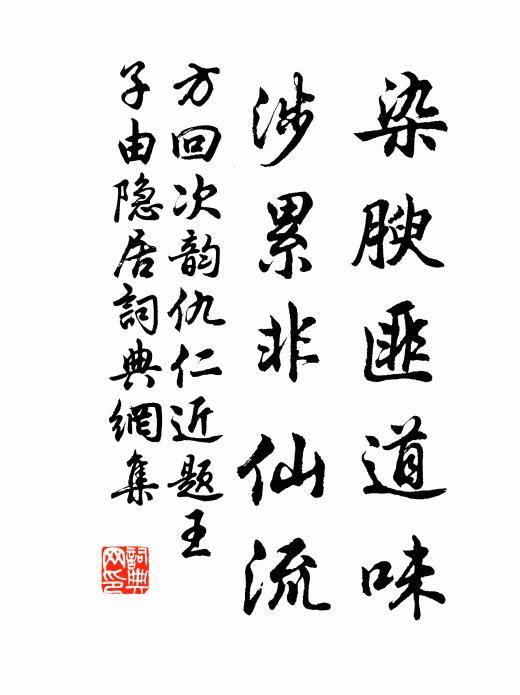 染腴匪道味
涉累非仙流
方回次韵仇仁近题王
子由隐居詞典網集
詞典網印